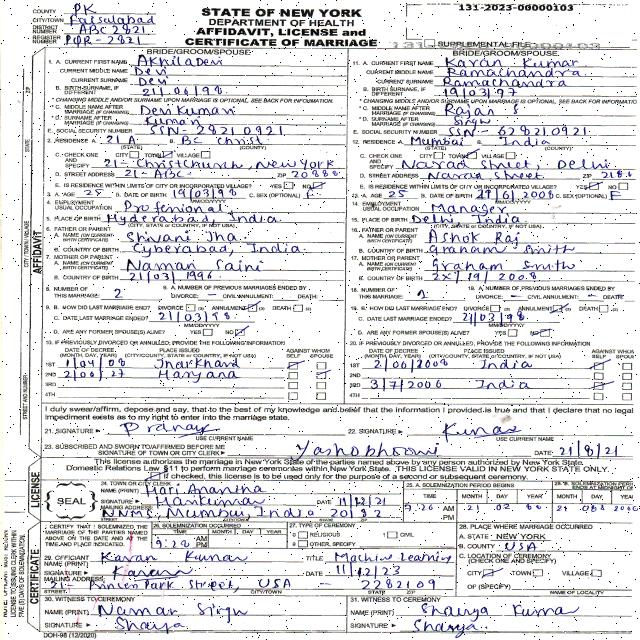 COUNTY PK
CITY/TOWN Faisulabad
DISTRICT NUMBER ABC 2821
REGISTER NUMBER PQR-2821
STATE OF NEW YORK
DEPARTMENT OF HEALTH
AFFIDAVIT, LICENSE and
CERTIFICATE OF MARRIAGE
131-2023-00000103
SUPPLEMENTAL FILE
BRIDE/GROOM/SPOUSE:
1. A. CURRENT FIRST NAME Akhiladevi
CURRENT MIDDLE NAME Devi
CURRENT SURNAME Devi
B. BIRTH SURNAME, IF DIFFERENT 21/06/98
*CHANGING MIDDLE AND/OR SURNAME UPON MARRIAGE IS OPTIONAL, SEE BACK FOR INFORMATION.
C. MIDDLE NAME AFTER MARRIAGE (IF CHANGING) Devikumari
D. SURNAME AFTER MARRIAGE (IF CHANGING) Kumari
E. SOCIAL SECURITY NUMBER SSN-28210921
2. RESIDENCE A. 21A B. BC Christ
C. CHECK ONE AND SPECIFY CITY TOWN VILLAGE
21- Christchurch, New York
D. STREET ADDRESS 21- ABC- ZIP 20888
E. IS RESIDENCE WITHIN LIMITS OF CITY OR INCORPORATED VILLAGE? YES NO
3. A. AGE 25 B. DATE OF BIRTH 19/03/98 C. SEX (OPTIONAL) F
4. EMPLOYMENT USUAL OCCUPATION Proffenional
5. PLACE OF BIRTH Hyderabad, India
6. FATHER OR PARENT
A. NAME Shivani Jha
B. COUNTRY OF BIRTH Cyberabad, India
7. MOTHER OR PARENT
A. NAME Naman Saini
B. COUNTRY OF BIRTH 21/03/1996
8. NUMBER OF THIS MARRIAGE 2
9. A. NUMBER OF PREVIOUS MARRIAGES ENDED BY
DIVORCE CIVIL ANNULMENT DEATH
B. HOW DID LAST MARRIAGE END? DIVORCE ANNULMENT DEATH
C. DATE LAST MARRIAGE ENDED? 21/03/98
D. ARE ANY FORMER SPOUSE(S) ALIVE? YES NO
10. IF PREVIOUSLY DIVORCED OR ANNULLED, PROVIDE THE FOLLOWING INFORMATION
DATE OF DECREE (MONTH, DAY, YEAR) PLACE ISSUED (CITY/COUNTY, STATE or COUNTRY, IF NOT USA) AGAINST WHOM SELF SPOUSE
1ST 1/04/08 Jharkhand
2ND 2/06/27 Haryana
3RD
4TH
BRIDE/GROOM/SPOUSE:
11. A. CURRENT FIRST NAME Karan Kumar
CURRENT MIDDLE NAME Ramachandra
CURRENT SURNAME Ramachandra
B. BIRTH SURNAME, IF DIFFERENT 19/03/97
*CHANGING MIDDLE AND/OR SURNAME UPON MARRIAGE IS OPTIONAL, SEE BACK FOR INFORMATION.
C. MIDDLE NAME AFTER MARRIAGE (IF CHANGING) Rajan S
D. SURNAME AFTER MARRIAGE (IF CHANGING) Singh
E. SOCIAL SECURITY NUMBER SSN-628210921
12. RESIDENCE A. Mumbai B. India
C. CHECK ONE AND SPECIFY CITY TOWN VILLAGE
Narad Street, Delhi
D. STREET ADDRESS Narad Street ZIP 2186
E. IS RESIDENCE WITHIN LIMITS OF CITY OR INCORPORATED VILLAGE? YES NO
13. A. AGE 25 B. DATE OF BIRTH 27/6/2001 C. SEX (OPTIONAL) F
14. EMPLOYMENT USUAL OCCUPATION Manager
15. PLACE OF BIRTH Delhi India
16. FATHER OR PARENT
A. NAME Ashok Raj
B. COUNTRY OF BIRTH Graham Smith
17. MOTHER OR PARENT
A. NAME Graham Smith
B. COUNTRY OF BIRTH 27/19/2008
18. NUMBER OF THIS MARRIAGE 2
19. A. NUMBER OF PREVIOUS MARRIAGES ENDED BY
DIVORCE CIVIL ANNULMENT DEATH
B. HOW DID LAST MARRIAGE END? DIVORCE ANNULMENT DEATH
C. DATE LAST MARRIAGE ENDED? 21/03/98
D. ARE ANY FORMER SPOUSE(S) ALIVE? YES NO
20. IF PREVIOUSLY DIVORCED OR ANNULLED, PROVIDE THE FOLLOWING INFORMATION
DATE OF DECREE (MONTH, DAY, YEAR) PLACE ISSUED (CITY/COUNTY, STATE or COUNTRY, IF NOT USA) AGAINST WHOM SELF SPOUSE
1ST 2/06/2008 India
2ND
3RD 3/7/2006 India
4TH
I duly swear/affirm, depose and say, that to the best of my knowledge and belief that the information I provided is true and that I declare that no legal
impediment exists as to my right to enter into the marriage state.
21. SIGNATURE Pranay
USE CURRENT NAME
22. SIGNATURE Kumar
USE CURRENT NAME
23. SUBSCRIBED AND SWORN TO/AFFIRMED BEFORE ME
SIGNATURE OF TOWN OR CITY CLERK Yashobhroni DATE 21/8/21
This license authorizes the marriage in New York State of the parties named above by any person authorized by New York State
Domestic Relations Law §11 to perform marriage ceremonies within New York State. THIS LICENSE VALID IN NEW YORK STATE ONLY.
If checked, this license is to be used only for the purpose of a second or subsequent ceremony.
SEAL
24. TOWN OR CITY CLERK
NAME (PRINT) Hari Anantha
SIGNATURE Harikumar DATE 11/12/21
MAILING ADDRESS NNMC Mumbai India 20132
25. A. SOLEMNIZATION PERIOD BEGINS
TIME MONTH DAY YEAR
9:26 AM PM 21 02 88
MONTH DAY YEAR
24 088 2006
I CERTIFY THAT I SOLEMNIZED THE MARRIAGE OF THE PARTIES NAMED ABOVE ON THE DATE AND AT THE TIME AND PLACE INDICATED.
26. SOLEMNIZATION OCCURRED
TIME MONTH DAY YEAR
9:28 AM PM
27. TYPE OF CEREMONY
0 RELIGIOUS 1 CIVIL
2 OTHER (SPECIFY)
28. PLACE WHERE MARRIAGE OCCURRED
A. STATE NEW YORK
B. COUNTY USA
C. LOCATION OF CEREMONY (CHECK ONE AND SPECIFY)
CITY TOWN VILLAGE
OF (SPECIFY)
NAME OF LOCALITY
29. OFFICIANT NAME (PRINT) Karan Kumar TITLE Machine Learning
SIGNATURE Karan DATE 11/12/23
MAILING ADDRESS Park Street, USA - 2282109
STREET CITY/TOWN STATE ZIP
30. WITNESS TO CEREMONY
NAME (PRINT) Namar Singh
SIGNATURE Sharya
31. WITNESS TO CEREMONY
NAME (PRINT) Shaurya Kuma
SIGNATURE Sharya
DOH-98 (12/2020)
AFFIDAVIT
LICENSE
CERTIFICATE
CITY TOWN VILLAGE
STREET AND NUMBER